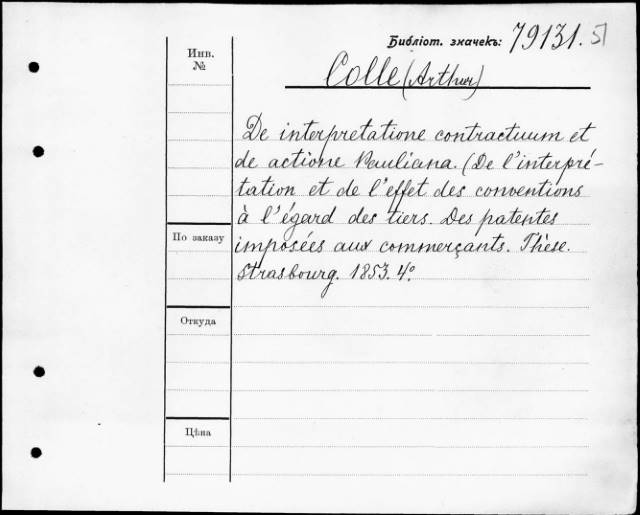 Библіот. значекъ: 79131.51
Инв.
№
Colle (Arthur)
De interpretatione contractuum et
de actione Pauliana. (De l'interpré-
tation et de l'effet des conventions
à l'égard des tiers. Des patentes
imposées aux commerçants. Thèse.
Strasbourg. 1853. 4°.
По заказу
Откуда
Цѣна